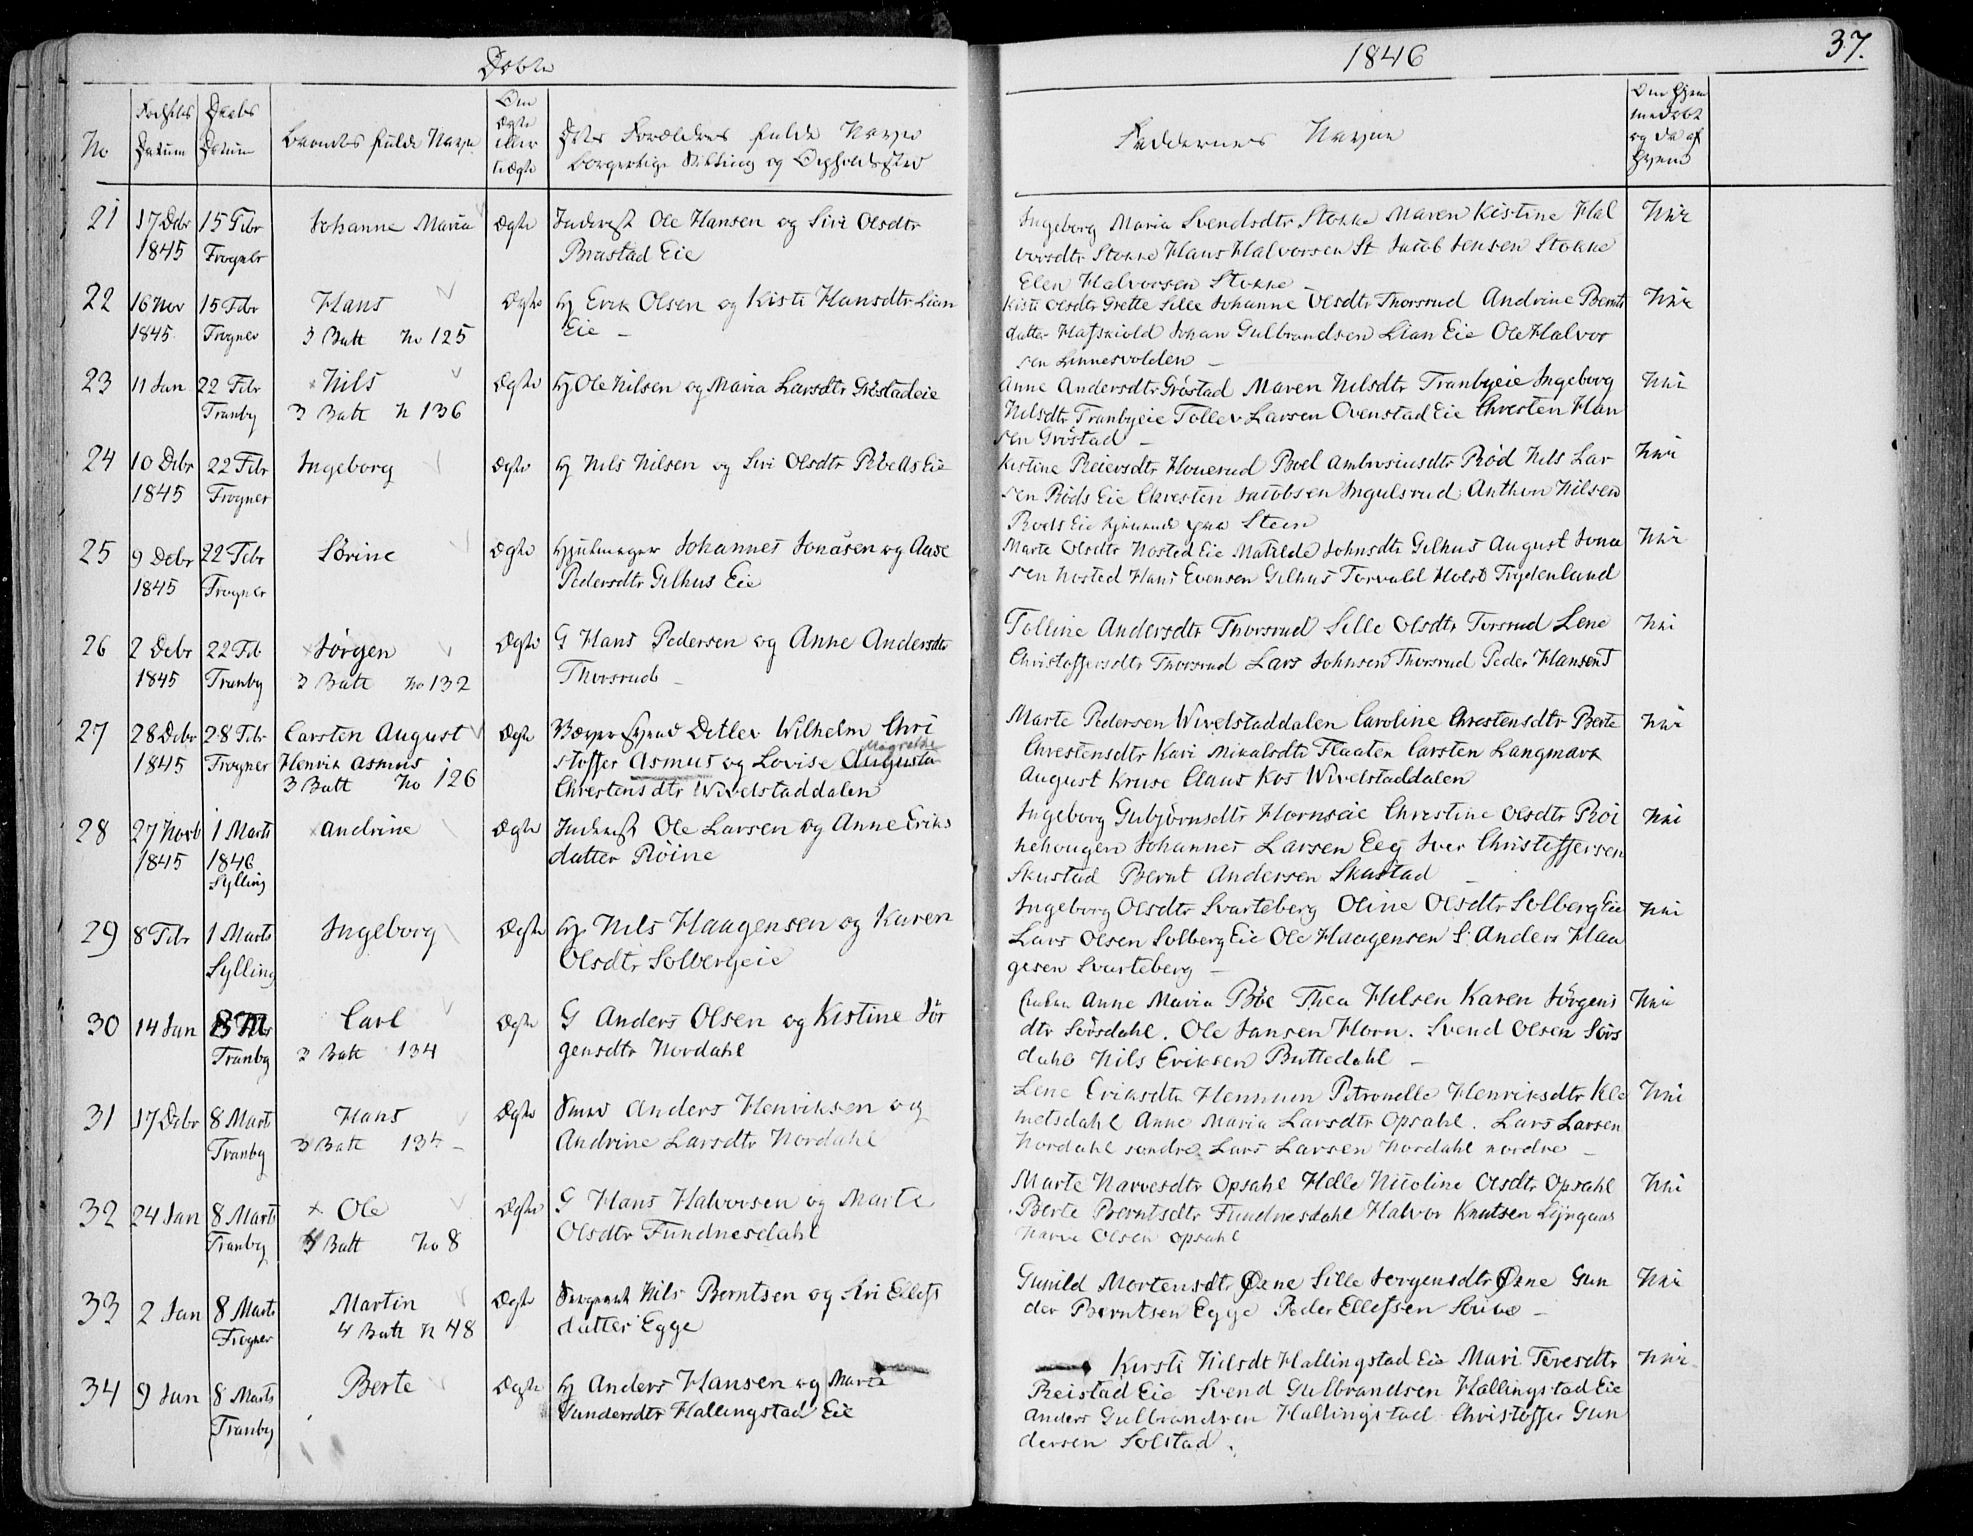 Døbte
1846
37.
No
Fødsels Datum
Daabs Datum
Barnets fulde Navn
Om Ægte eller uægte
Dets Forældres fulde Navne
borgerlige Stilling og Opholdssted
Faddernes Navne
Om Hjemmedøbt og da af Hvem
21 17 Debr 1845 15 Febr Frogner Johanne Maria Ægte Inderst Ole Hansen og Siri Olsdtr
Brastad Eie
Ingeborg Maria Svendsdtr Stokke Maren Kistine Hal
vorsdtr Stokke Hans Halvorsen St Jacob Jensen Stokke
Elen Halvorsen Stokke
Nei
22 16 Nov 1845 15 Febr Frogner Hans
3 Batt No 125
Ægte Hj Erik Olsen og Kisti Hansdtr Lian
Eie
Kisti Olsdtr Grette Sille Johanne Olsdtr Thorsrud Andrine Bernts
datter Hafskiold Johan Gulbrandsen Lian Eie Ole Halvor
sen Linnesvolden
Nei
23 11 Jan 22 Febr Tranby Nils
3 Batt N 136
Ægte Hj Ole Nilsen og Maria Larsdtr Gröstadeie
Anne Andersdtr Gröstad Maren Nilsdtr Tranbyeie Ingeborg
Nilsdtr Tranbyeie Tollev Larsen Ovenstad Eie Chresten Han
sen Gröstad
Nei
24 10 Debr 1845 22 Febr Frogner Ingeborg Ægte Hj Nils Nilsen og Siri Olsdtr Röeds Eie
Kistine Reiersdtr Houerud Boel Ambrosiusdtr Röd Nils Lar
sen Röds Eie Chresten Jacobsen Ingulsrud Anthon Nilsen
Roeds Eie tjenende paa Steen
Nei
25 9 Debr 1845 22 Febr Frogner Sörine Ægte Hjulmager Johannes Jonasen og Aase
Pedersdtr Gilhus Eie
Marte Olsdtr Nosted Eie Matilde Johnsdtr Gilhus August Jona
sen Nosted Hans Evensen Gilhus Torvald Holst Frydenlund
Nei
26 2 Debr 1845 22 Feb Tranby Jörgen
3 Batt No 132
Ægte G Hans Pedersen og Anne Andersdtr
Thorsrud
Tolline Andersdtr Thorsrud Sille Olsdtr Torsrud Lene
Christoffersdtr Thorsrud Lars Johnsen Thorsrud Peder Hansen T
Nei
27 28 Debr 1845 28 Febr Frogner Carsten August
Henrik Asmus
3 Batt No 126
Ægte Væversvend Detlev Wilhelm Chri
stoffer Asmus og Lovise Augusta
Magrethe
Chrestensdtr Wivelstaddalen
Marte Pedersen Wivelstaddalen Caroline Chrestensdtr Berte
Chrestensdtr Kari Mikalsdtr Flaaten Carsten Langmark
August Kruse Claus Kos Wivelstaddalen
Nei
28 27 Novb 1845 1 Marts 1846 Sylling Andrine Ægte Inderst Ole Larsen og Anne Eriks
datter Röine
Ingeborg Gubjörnsdtr Hornseie Chrestine Olsdtr Röi
nehougen Johannes Larsen Eeg Iver Christoffersen
Skustad Bernt Andersen Skustad
Nei
29 8 Febr 1 Marts Sylling Ingeborg Ægte Hj Nils Haagensen og Karen
Olsdtr Solbergeie
Ingeborg Olsdtr Svarteberg Oline Olsdtr Solberg Eie
Lars Olsen Solberg Eie Ole Haagensen S. Anders Haa
gesen Svarteberg
Nei
30 14 Jan Tranby Carl
3 Batt 134
Ægte G Anders Olsen og Kistine Jör
gensdtr Nordahl
Anne Maria Böe Thea Nilsen Karen Jörgens
dtr Sörsdahl. Ole Jansen Horn. Svend Olsen Sörs
dahl Nils Eriksen Buttedahl
Nei
31 17 Debr 8 Marts Tranby Hans
3 Batt
Ægte Smed Anders Henriksen og
Andrine Larsdtr Nordahl
Lene Eriksdtr Hennum Petronelle Henriksdtr Kle
metsdahl Anne Maria Larsdtr Opsahl. Lars Larsen
Nordahl söndre. Lars Larsen Nordahl nordre
Nei
32 24 Jan 8 Marts Tranby Ole
4 Batt No 8
Ægte G Hans Halvorsen og Marte
Olsdtr Fundnesdahl
Marte Narvesdtr Opsahl Helle Nicoline Olsdtr Opsahl
Berte Berntsdtr Fundnesdahl Halvor Knutsen
Narve Olsen Opsahl
Nei
33 2 Jan 8 Marts Frogner Martin
4 Batt N 48
Ægte Sergeant Nils Berntsen og Siri Ellefs
datter Egge
Gunild Mortensdtr Øxne Sille Jorgensdtr Øxne Gun
der Berntsen Egge Peder Ellefsen
Nei
34 9 Jan 8 Marts Tranby Berte Ægte Hj Anders Hansen og Maria
Gundersdtr Hallingstad Eie
Kirsti Nilsdt Hallingstad Eie Mari Teresdtr
Reistad Eie Svend Gulbrandsen Hallingstad Eie
Anders Gulbrandsen Hallingstad Christoffer Gun
dersen Solstad.
Nei